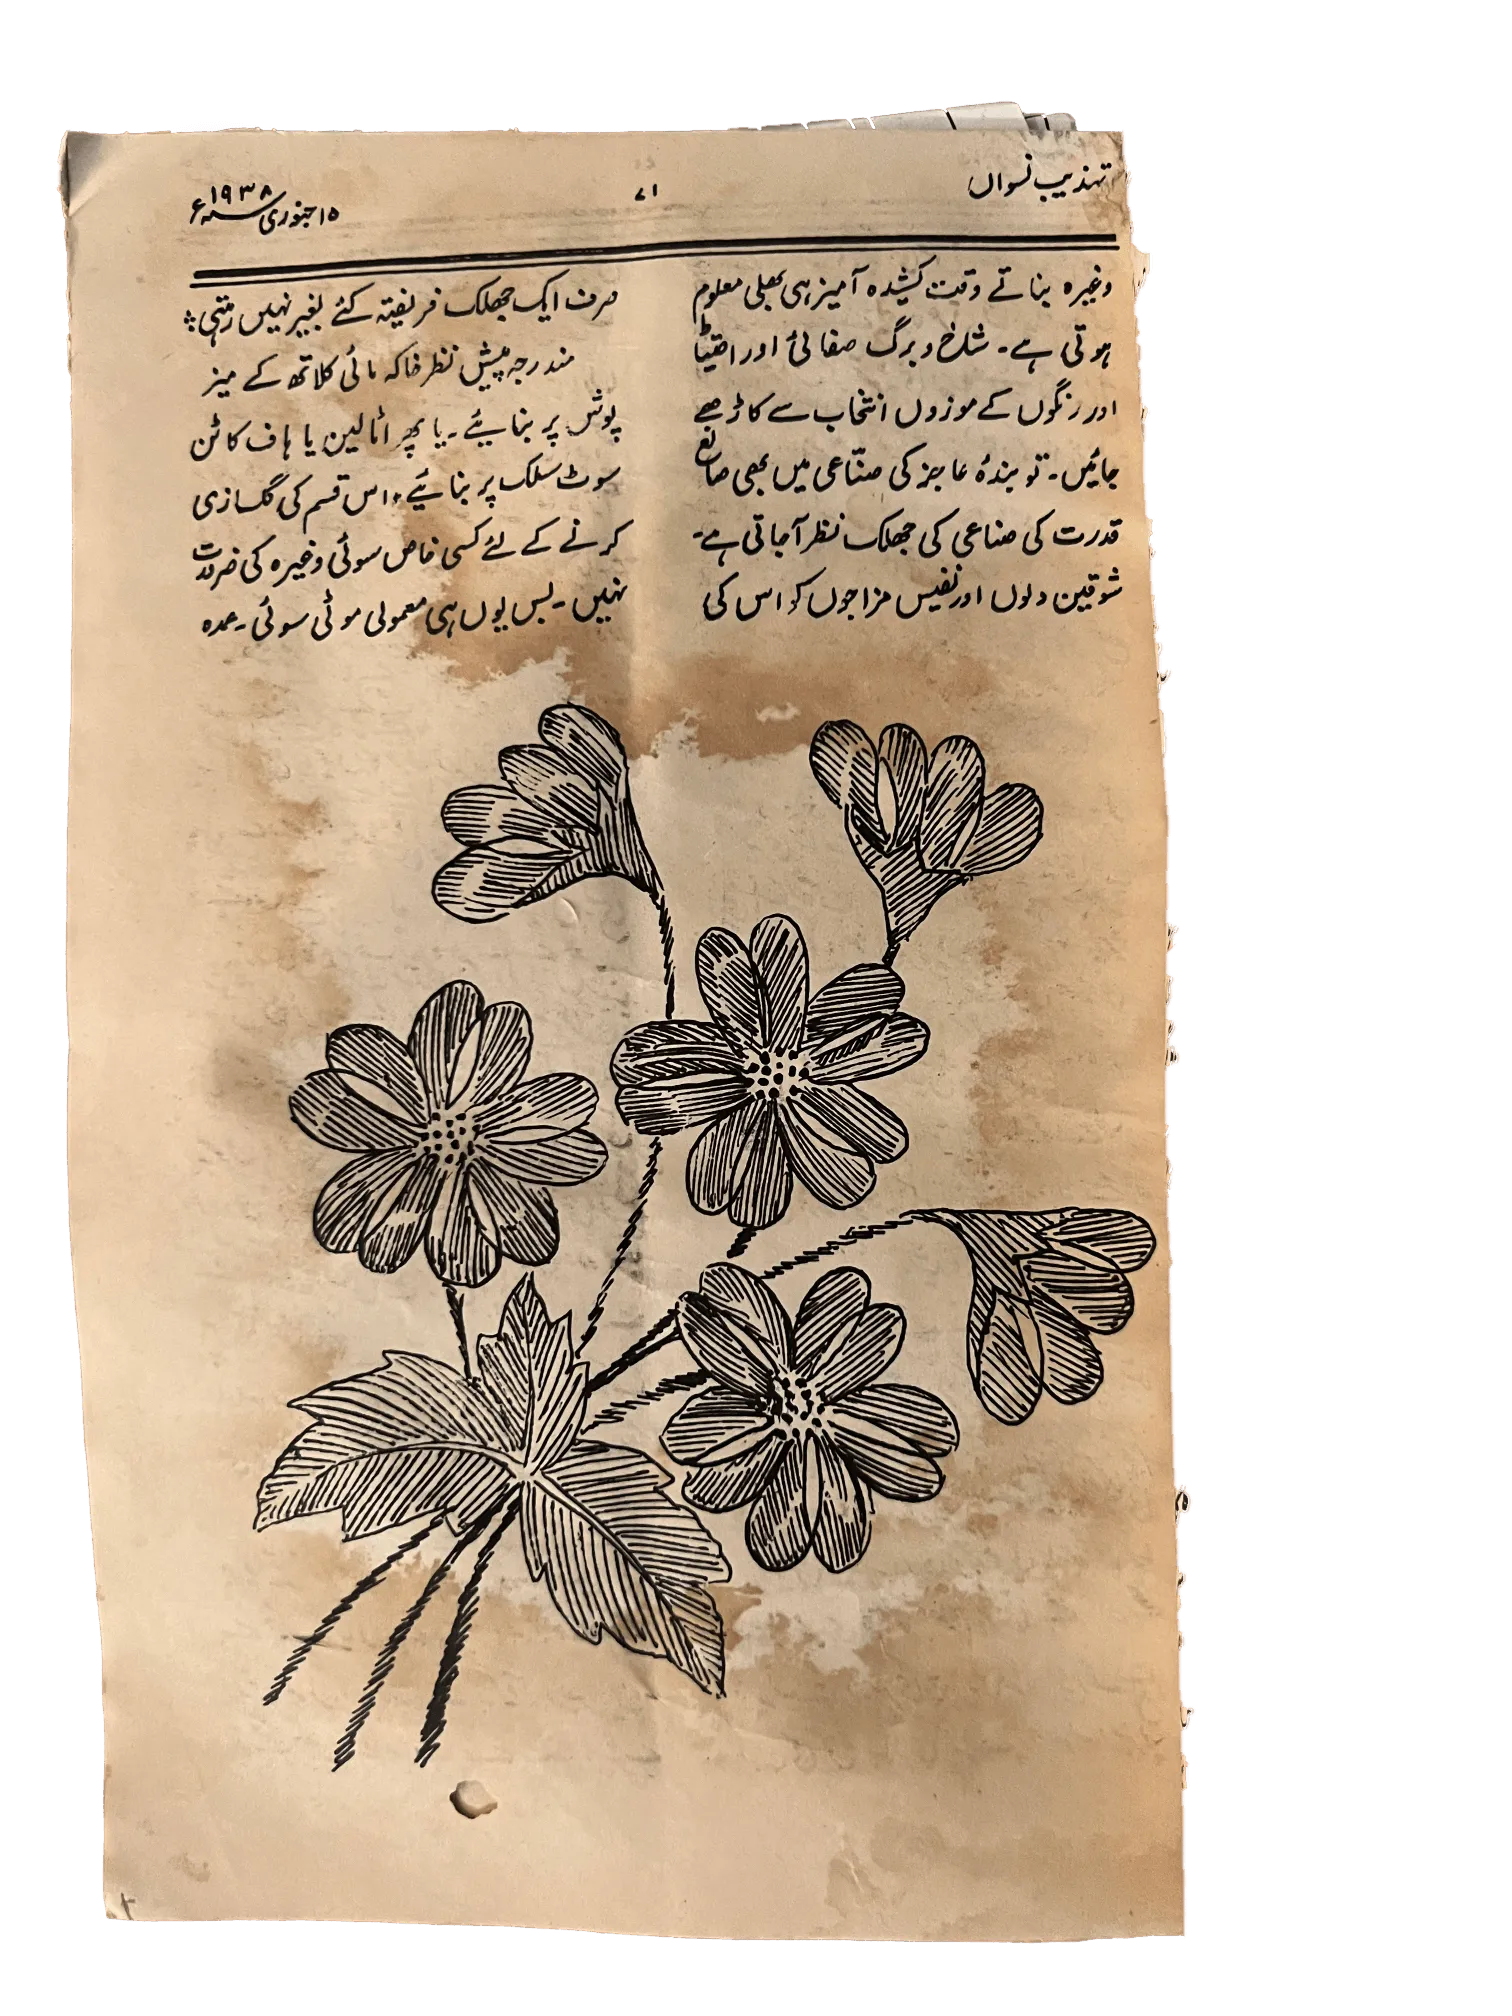 تہذیب نسواں
۷۱
۱۵جنوری سنہ ۱۹۳۸ء
وغیرہ بناتے وقت کشیدہ آمیز ہی بھلی معلوم
ہوتی ہے۔ شاخ و برگ صفائی اور احتیاط
اور رنگوں کے موزوں انتخاب سے کاڑھے
جائیں۔ تو بندۂ عاجز کی صنّاعی میں بھی صانع
قدرت کی صناعی کی جھلک نظر آجاتی ہے۔
شوقین دلوں اور نفیس مزاجوں کو اس کی
صرف ایک جھلک فریفتہ کئے بغیر نہیں رہتی
مندرجہ پیش نظر خاکہ کلاتھ کے میز
پوش پر بنائیے۔ یا پھر اٹالین یا ہاف کاٹن
سوٹ سلک پر بنائیے، اس قسم کی گلسازی
کرنے کے لئے کسی خاص سوئی وغیرہ کی ضرورت
نہیں۔ بس یوں ہی معمولی موٹی سوئی۔ عمدہ